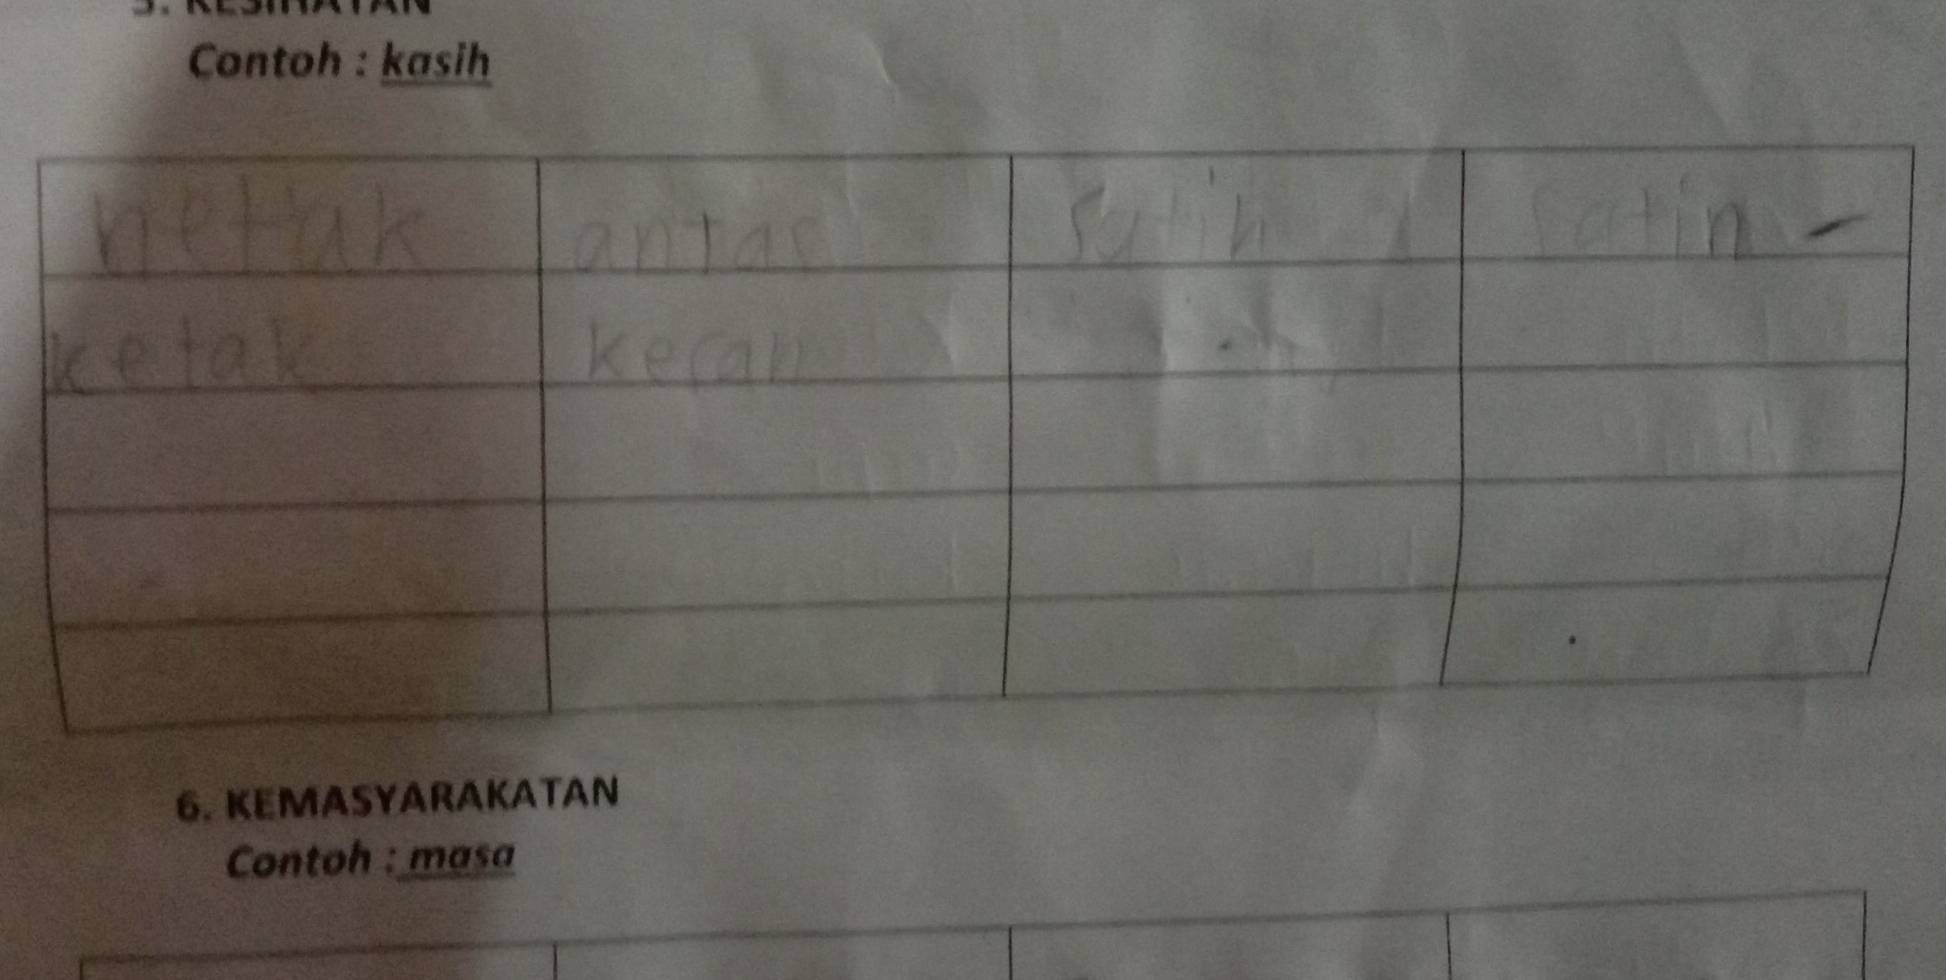 5. KESIHATAN
Contoh : kasih
hettak antas satih satin -
ketak keran
6. KEMASYARAKATAN
Contoh : masa